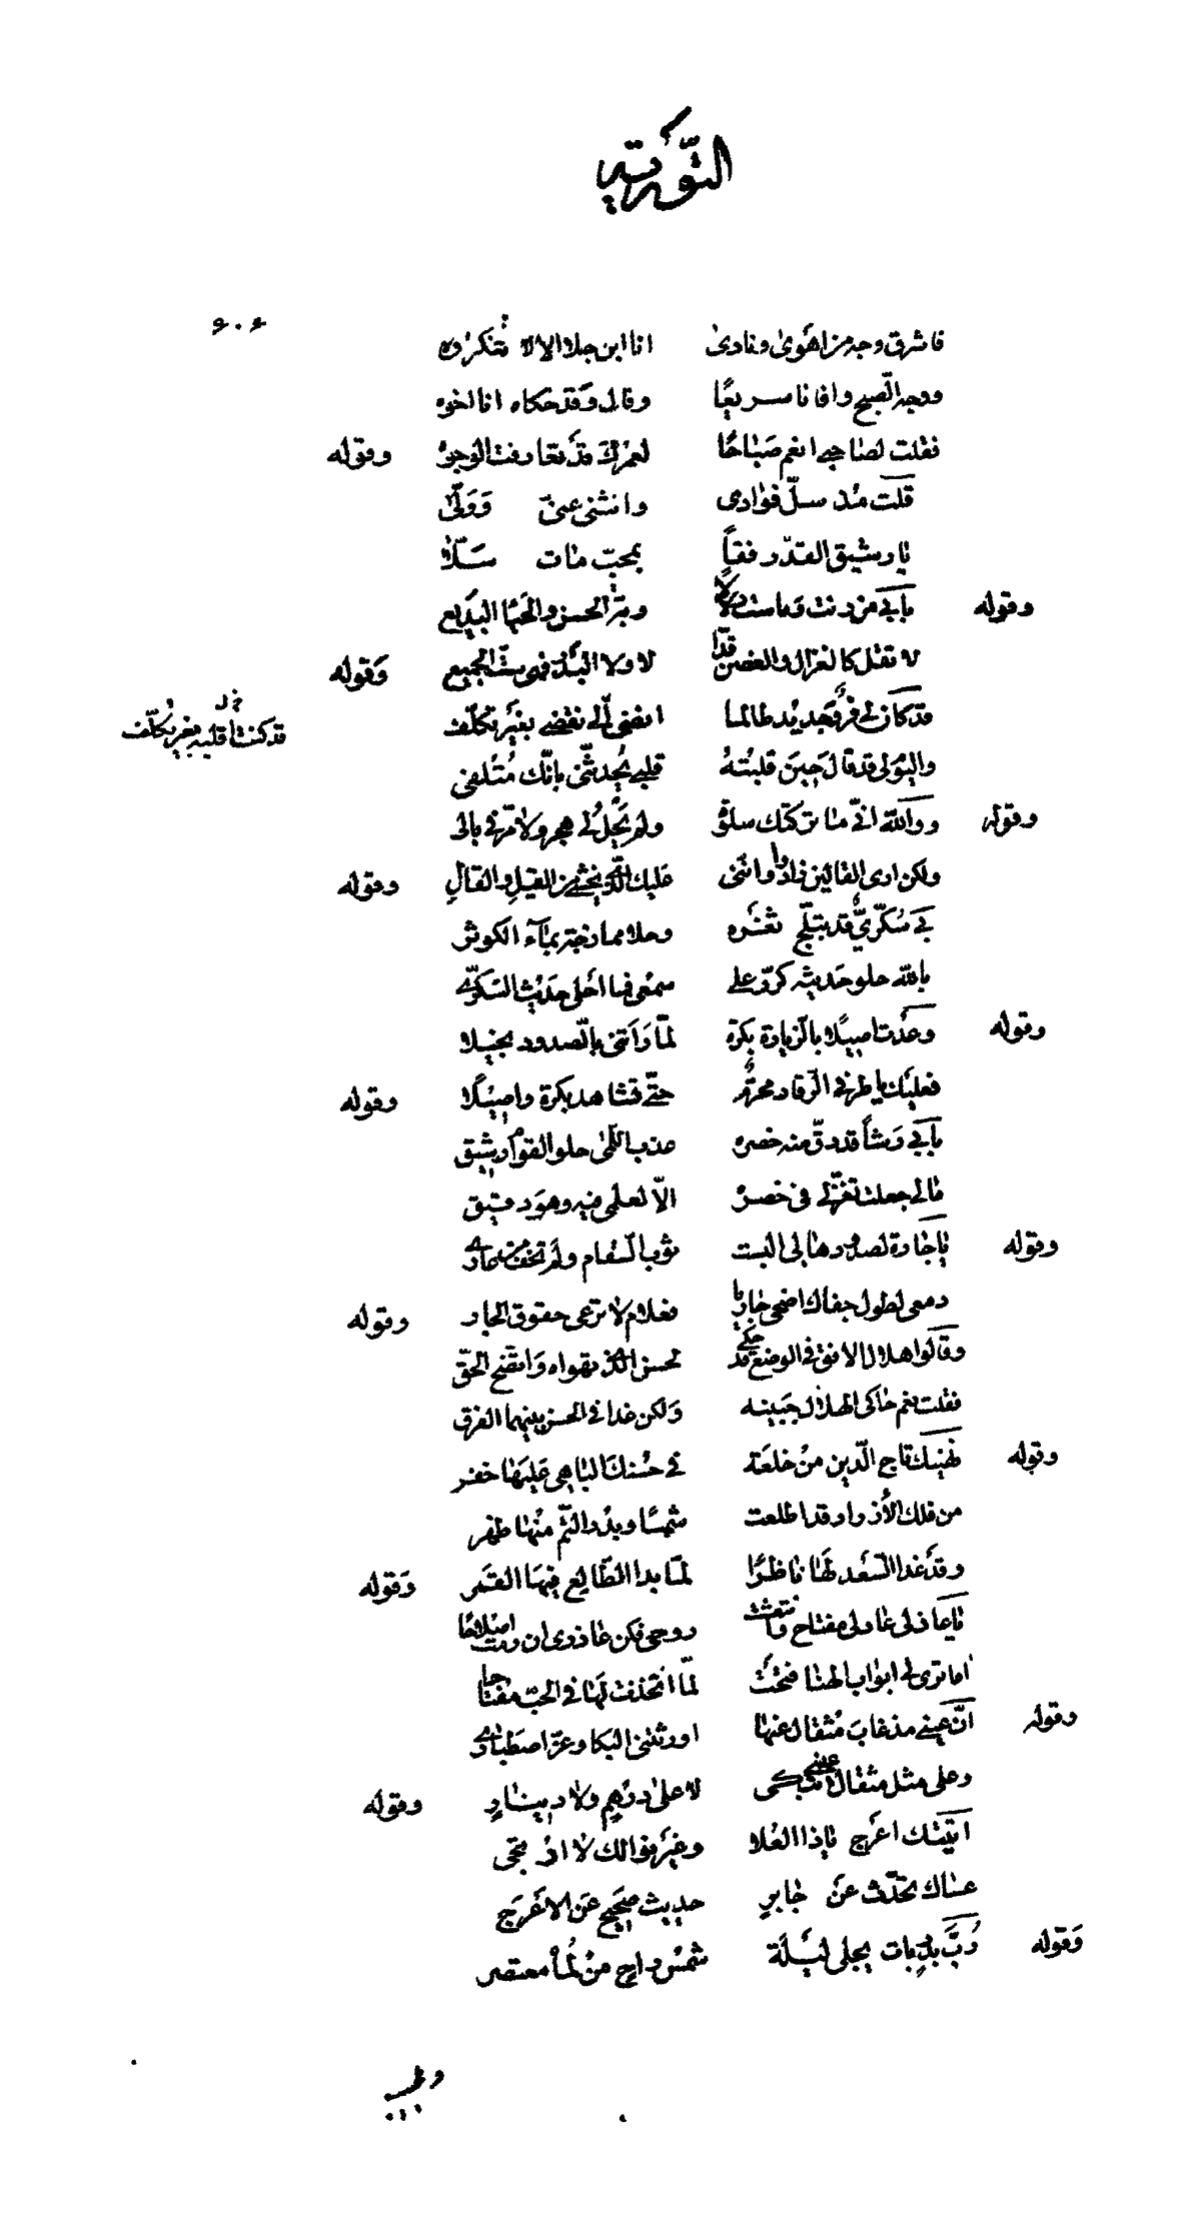 التورية
٤٠٤
فاشرق وجه من اهوى ونادى انا ابن جلا الا لا تنكروه
ووجه الصبح وافانا سريعًا وقال وقد حكاه انا اخوه
فقلت لصاحبي انعم صَبَاحًا لعمرك قد تعارفت الوجوه وقوله
قلت مذ سلّ فوادى وانثنى عنى وَوَلّى
يا رشيق القدّ رفقاً بمحبّ مات سَلّا
وقوله بابى من دنت وماست دلالا الحسن والبها البديع
لا تقل كالغزال والغصن قدّا لا ولا البدر فهى ست الجميع وَقوله
قد كان لى فرو جديد طالما امضى لى تقضى بغير تكلّف
قد كنت اقلبه بغير تكلّف
واليوم لى قد قال حِينَ قلبتهُ قلبى يُحدثّنى بانّك مُتلفى
وقوله ووالله انى ما تركتك سلوة ولم يَحلُ لى هجر ولا مرّ فى بالى
ولكن ارى القالين زادوا واننى عليك الذى يخشى من القيل والقالِ وقوله
بى سُكّريّ قد تبلّج ثغره وحلا ممازجة بماء الكوثر
بالله حلو حديثه كرّر على سمعى فما احلى حديث السكّرى
وقوله وعدت اصيلا بالزيارة بكرة لمّا رَاَتنى بالصدود بخيلا
فعليك يا طرفى الرقاد محرّم حتّى تشاهد بكرة واصيلًا وقوله
بابى رَشاً قد دقّ منه خصره عذب اللّمى حلو القوام رشيق
مالى جعلت تغزّلى فى خصره الّا لعلمى فيه وهوَ دقيق
وقوله يا جارة لصدودها بى البست ثوب السقام ولم تخف من عار
دمعى لطول جفاك اضحى جاريا فعلام لا ترعى حقوق الجار وقوله
وقالوا هلال الافق فى الوضع قد حكى لحسن الذى تهواه وَاتضح الحقّ
فقلت نعم حاكى الهلال جبينه وَلكن غدا فى الحسن بينهما الفرق
وقوله تهنيك تاج الدّين منْ خلعَة فى حُسنك الباهى عَليهَا خفر
من فلك الأزرار قد اطلعت شمسًا وبدر التمّ منْها ظهر
وقد غدا السّعد لهَا ناظرًا لمّا بدا الطالع فيهَا القمَر وَقوله
يا عاذلى عاد لى مفتاح وانتعشت روحى فكن عاذرى ان رمت اصلاحا
اما ترى لى ابواب الهنا فتحت لمّا اتخذت لهَا فى الحبّ مفتاحا
وقوله انّ عينى مذ غابَ مثقال عنها اورثتنى البكا وعزّ اصطبارى
وعلى مثل مثقال عينى تبكى لا على درهم ولا دينارٍ وقوله
اتيتك اعرج يا ذا العُلا وغير نوالك لا ارتجى
عساك تحدّث عَن جابرٍ حديث صحيح عَن الاعْرَج
وَقوله رُبَّ بدر بات يجلى ليلَة شمس راحٍ منْ لُمأ معتصر
وطبيب